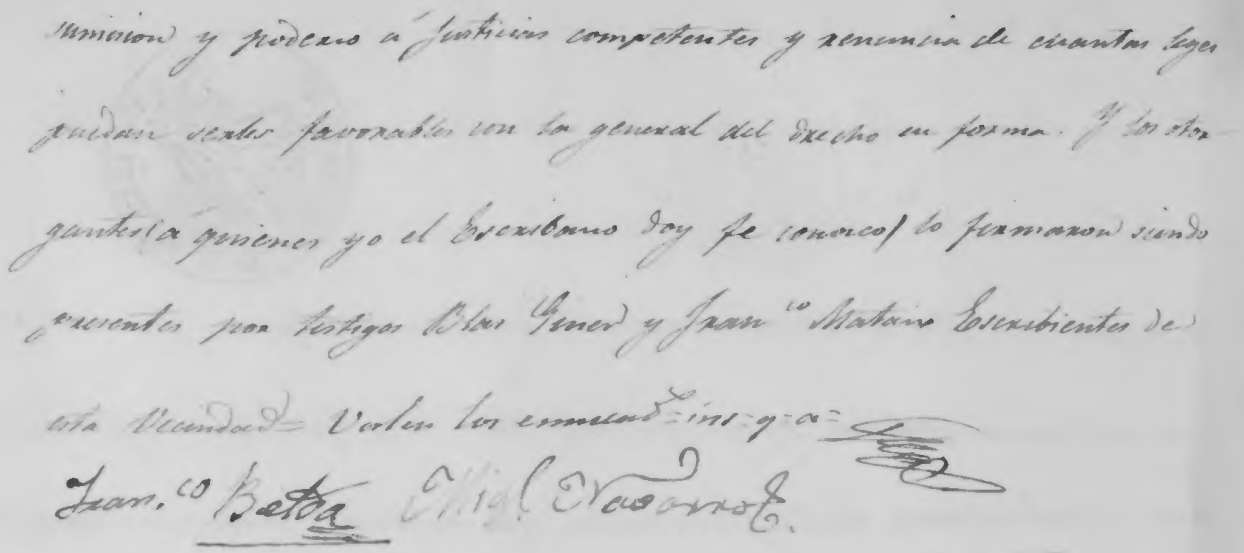 sumision y poderio á Justicias competentes y renuncia de cuantas leyes
puedan serles favorables con la general del drecho en forma. Y los otor-
gantes (á quienes yo el Escribano doy fe conozco) lo firmaron siendo
presentes por testigos Blas Giner y Fran.co Mataix Escribientes de
esta Vecindad = Valen los enmend.s = ins = q = a =
Fran.co Belda Mig.l Navarro